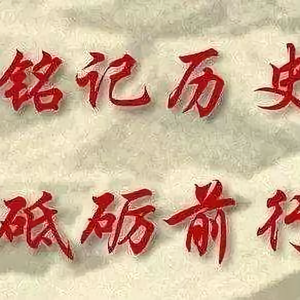 铭记历史
砥砺前行